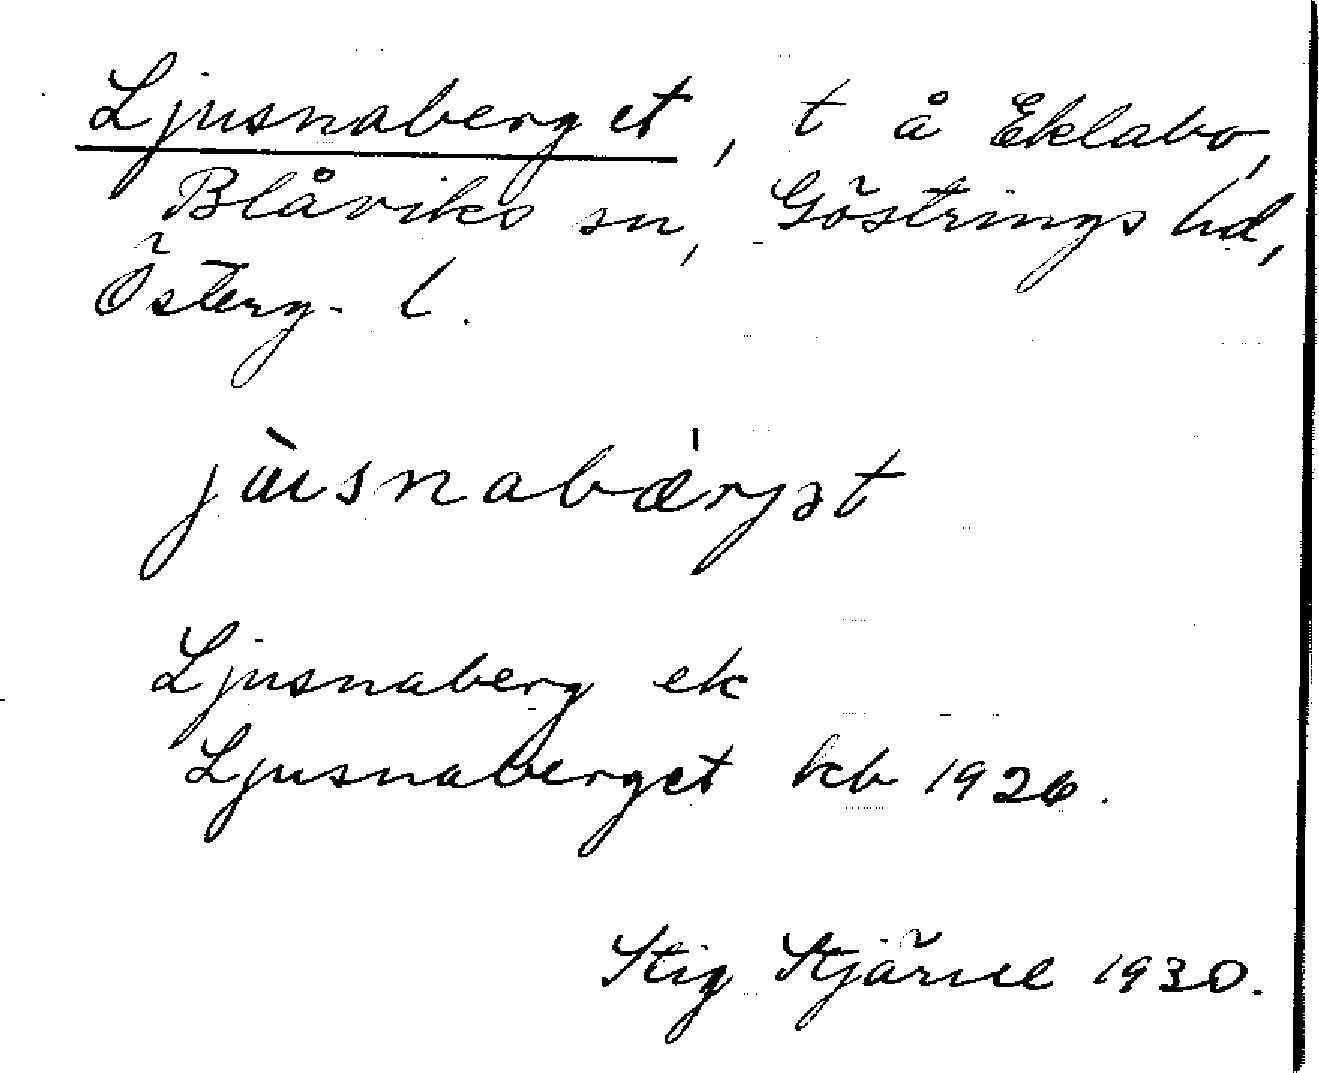 Ljusnaberget, t å Eklabo,
Blåviks sn, Göstrings hd,
Österg. l.
jùsnabæ̀rjət
Ljusnaberg ek
Ljusnaberget kb 1926.
Stig Stjärne 1930.